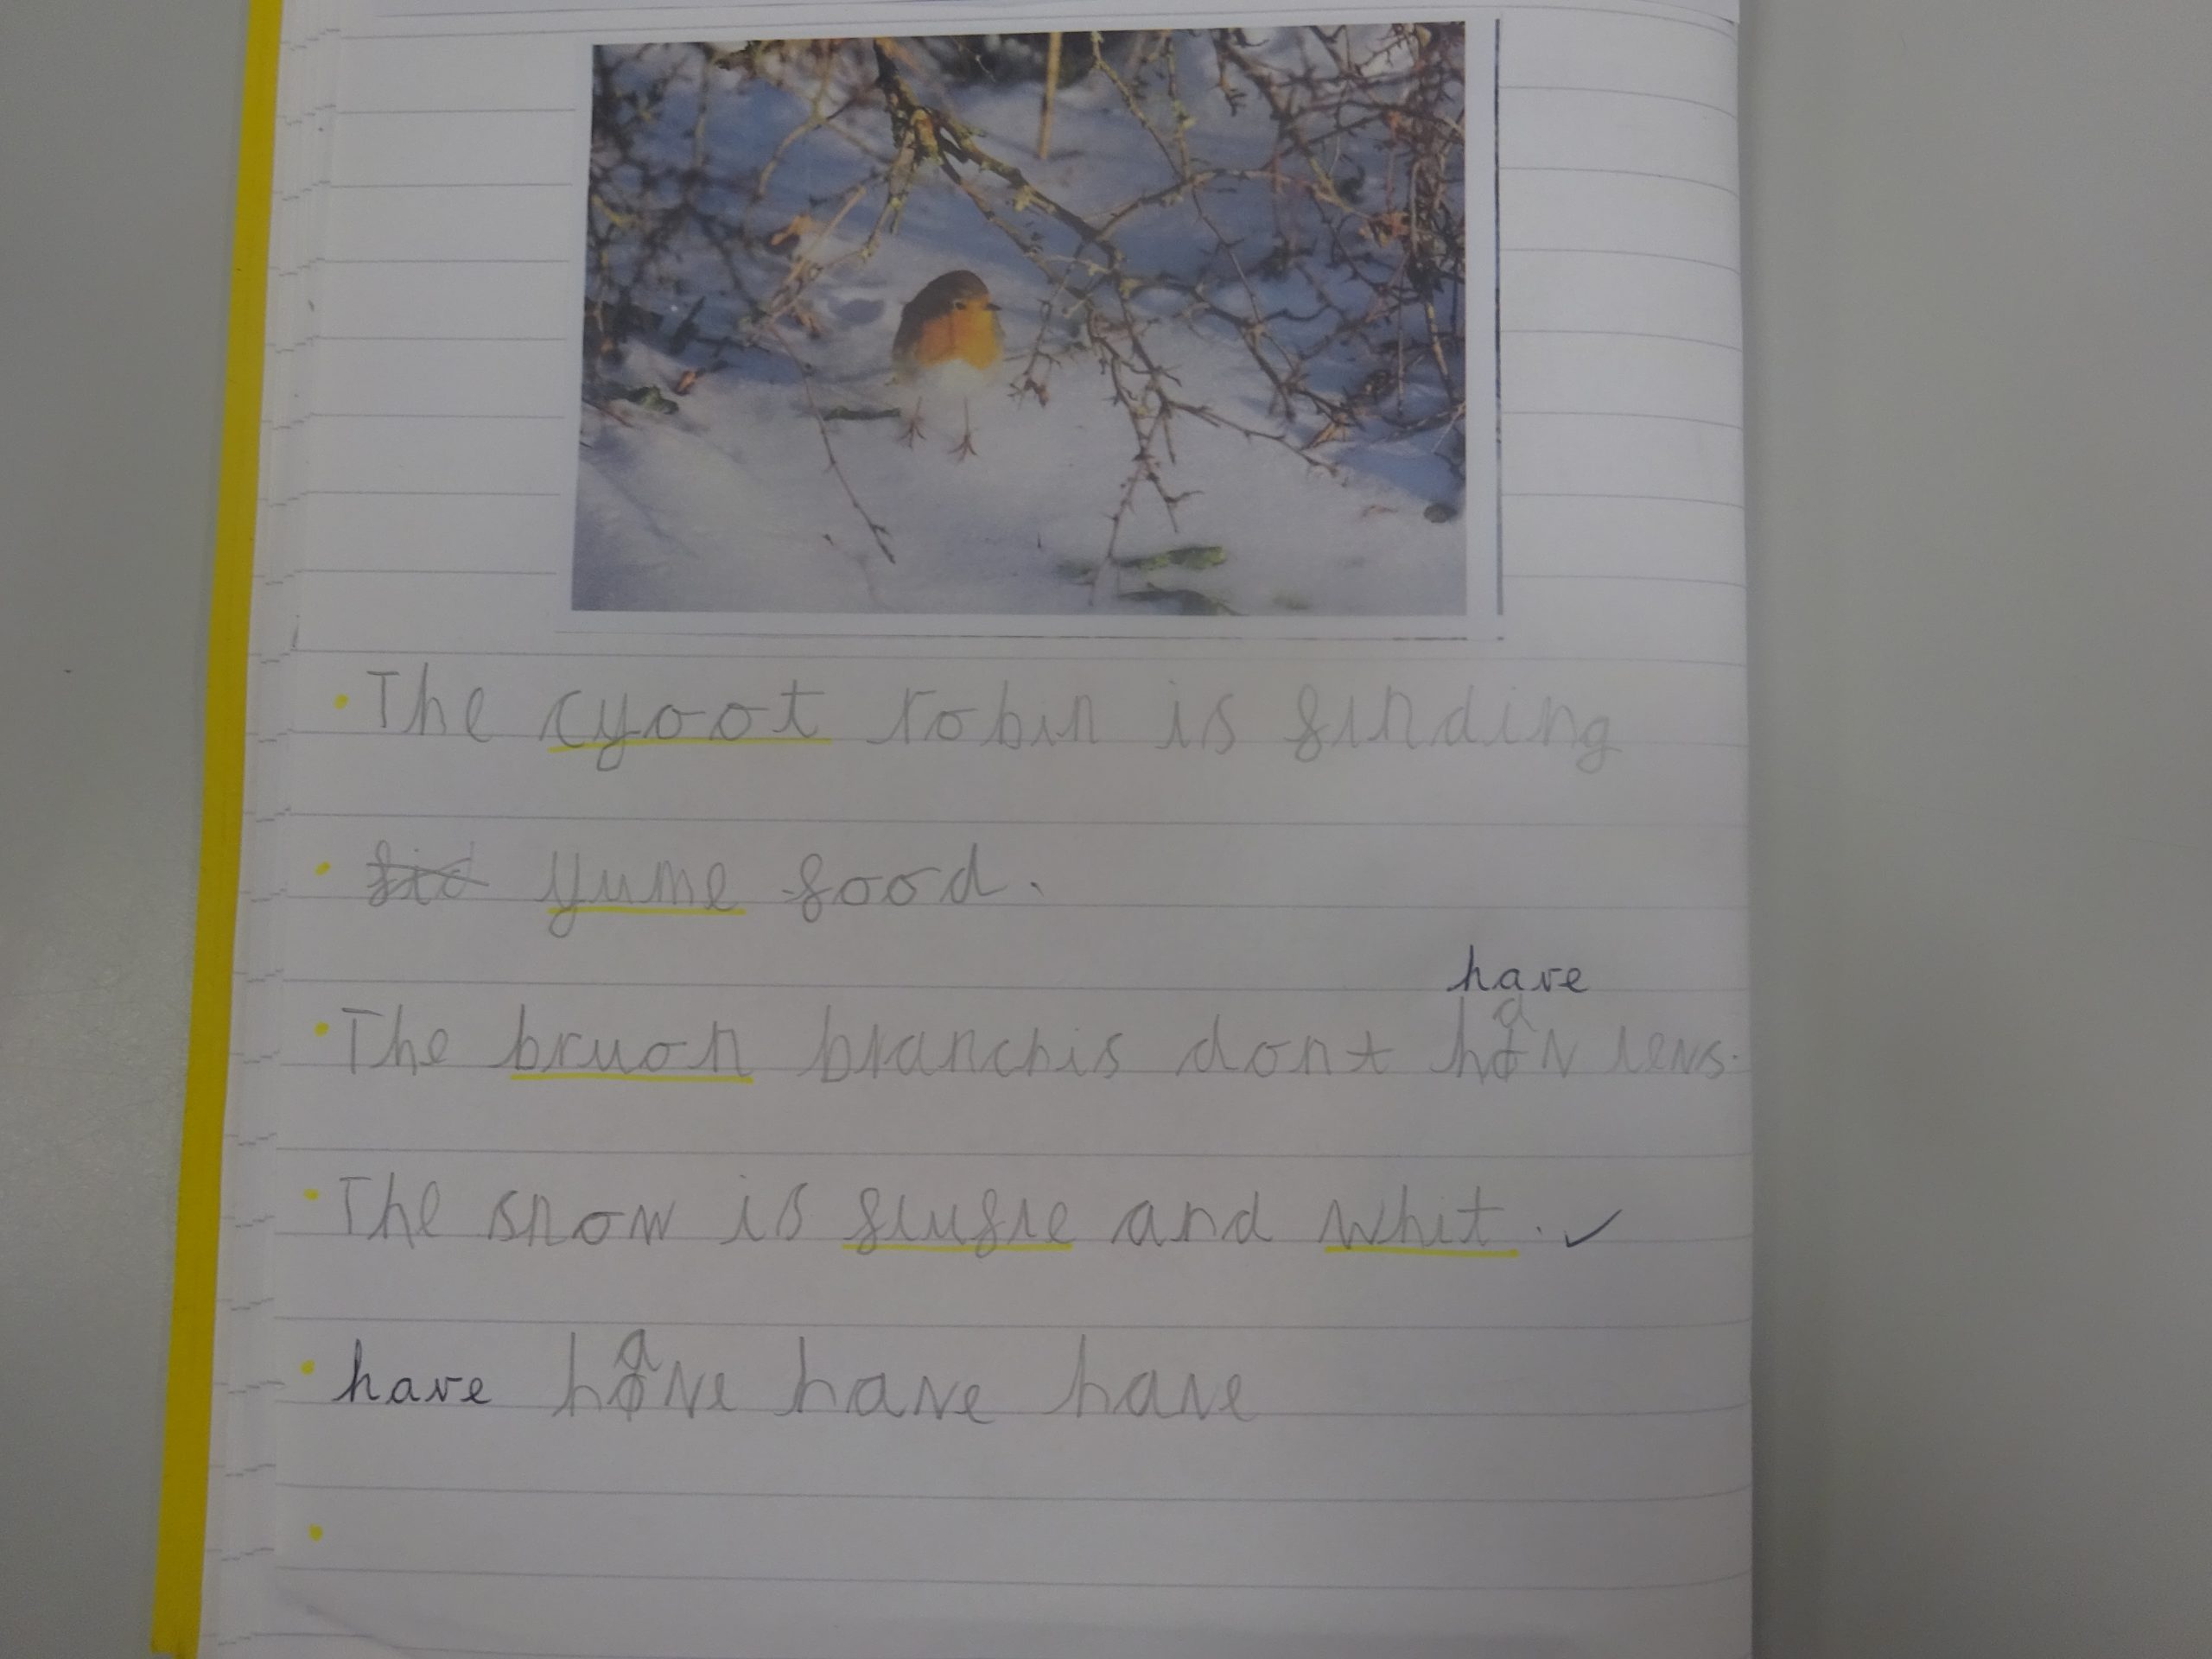 The cyoot robin is finding
fid yume food.
have
The bruon branchis dont hav levs.
The snow is flufie and whit.
have have have have